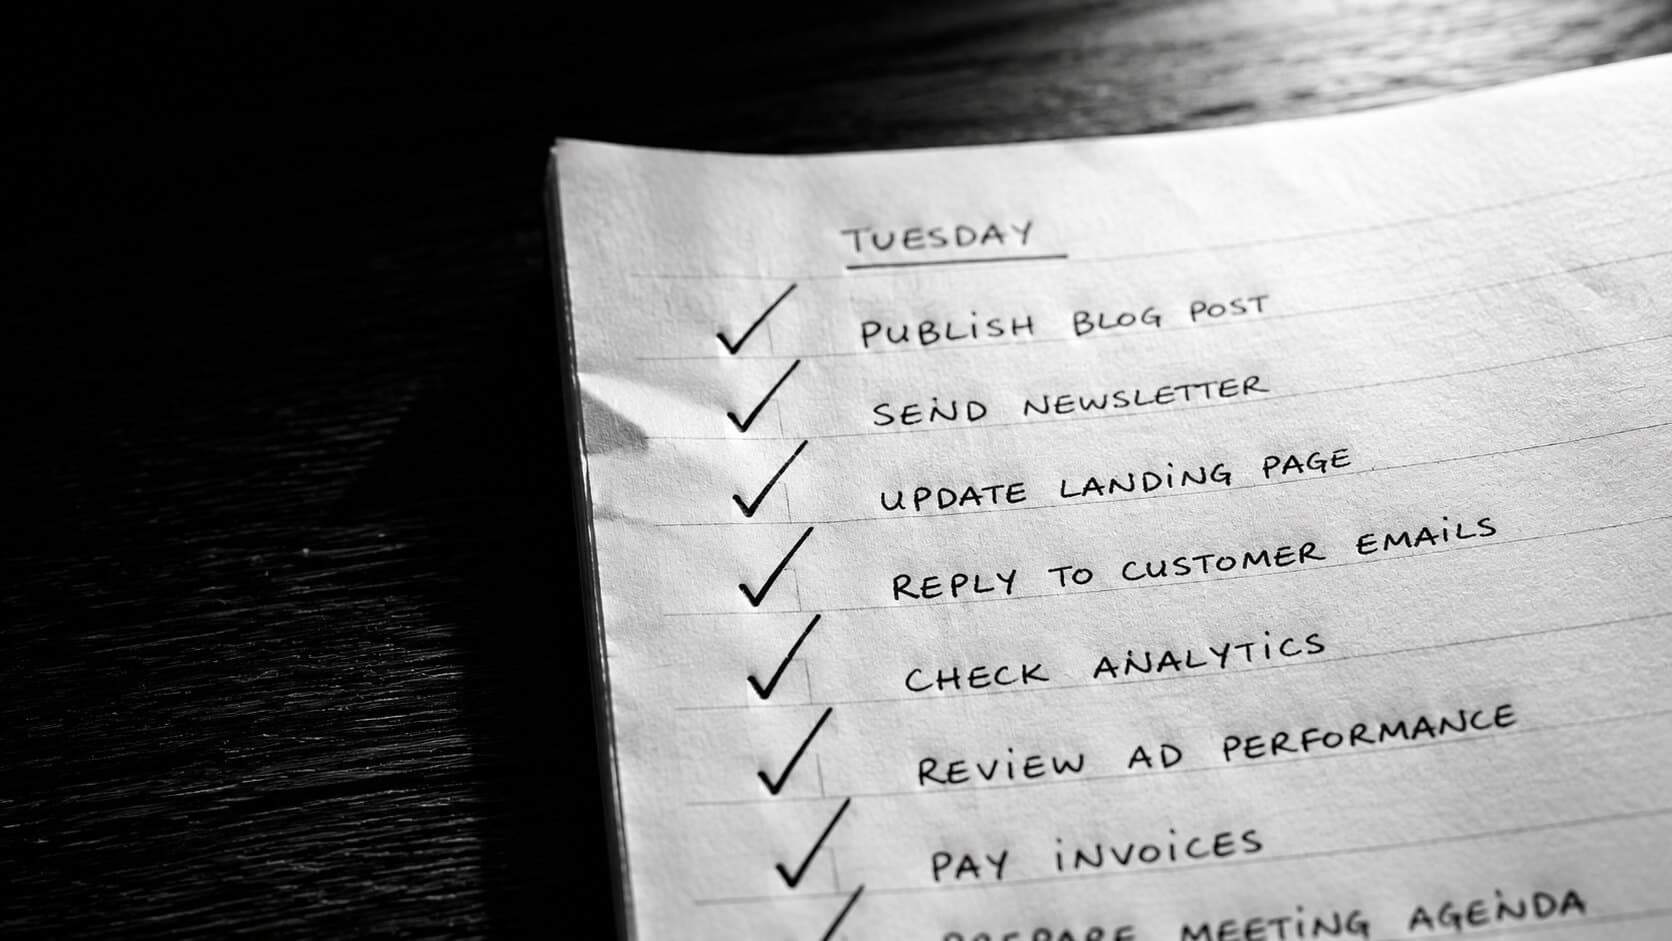 TUESDAY
✓ PUBLISH BLOG POST
✓ SEND NEWSLETTER
✓ UPDATE LANDING PAGE
✓ REPLY TO CUSTOMER EMAILS
✓ CHECK ANALYTICS
✓ REVIEW AD PERFORMANCE
✓ PAY INVOICES
✓ PREPARE MEETING AGENDA